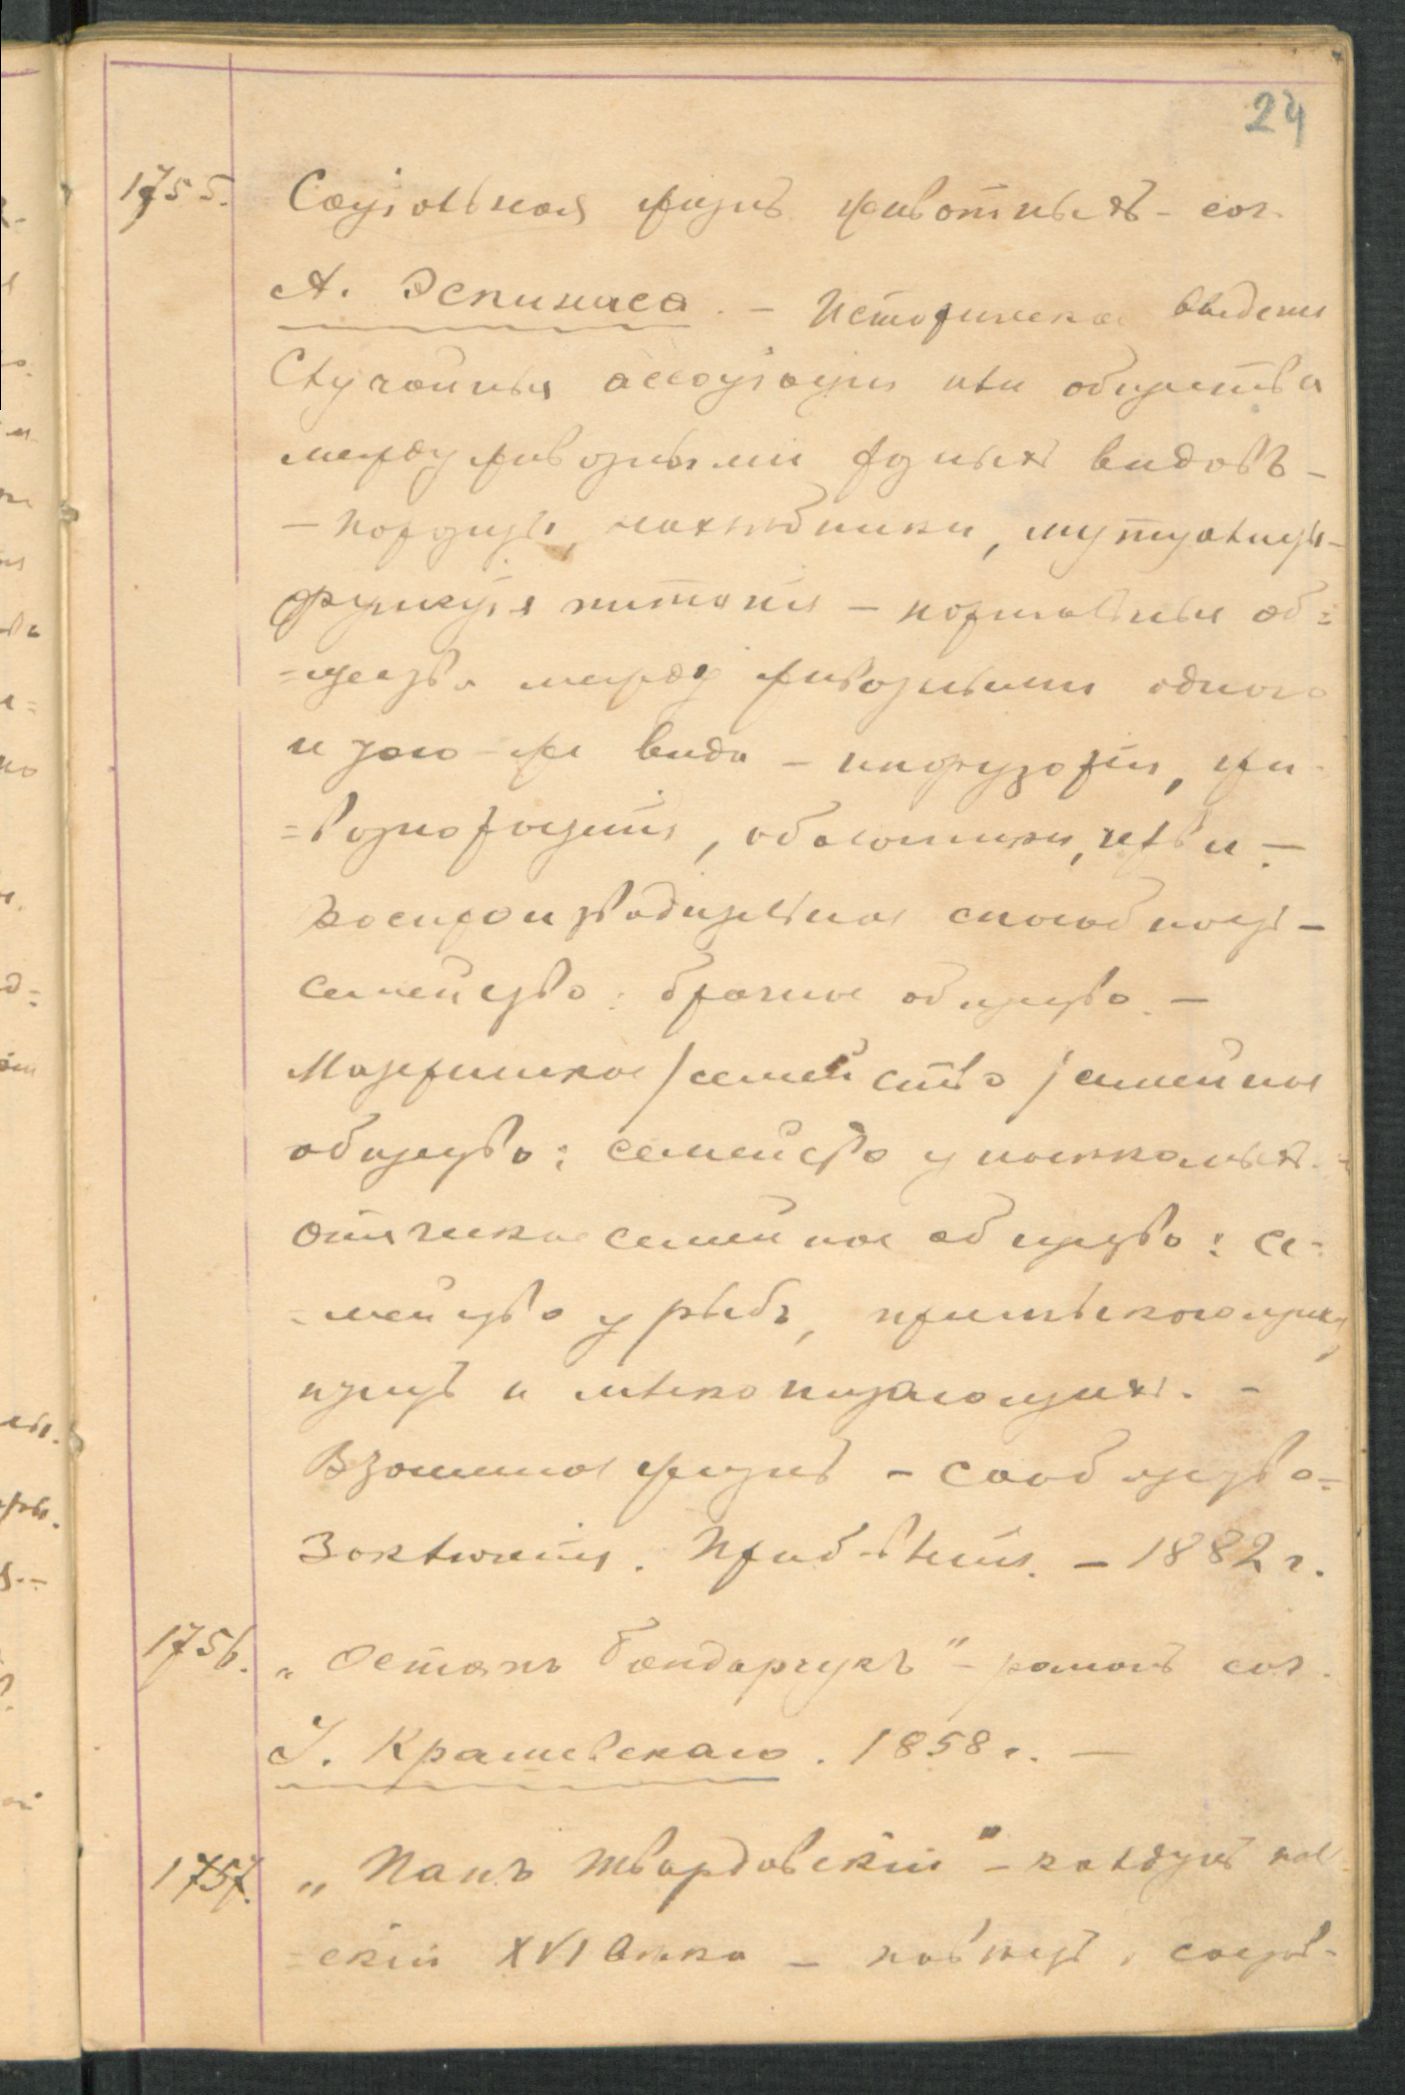 24
1755. Соціальная жизнь животныхъ – соч.
А. Эспинаса. – Историческое введеніе
Случайныя ассоціаціи или общества
между животными разныхъ видовъ –
– паразиты, нахлѣбники, мутуалисты –
функція питанія – нормальныя об=
=щества между животными одного
и того-же вида – инфузоріи, жи-
=вотнорастенія, оболочники, черви. –
Воспроизводительная способность –
семейство: брачное общество. –
Материнское семейство семейное
общество: семейство у насѣкомыхъ. –
Отческое семейное общество: се=
=мейство у рыбъ, пресмыкающихся,
птицъ и млекопитающихъ. –
Взаимная жизнь – сообщество =
Заключеніе. Прибавленія. – 1882 г.
1756. „Остапъ Бондарчукъ" – романъ соч.
І. Крашевскаго. 1858 г. –
1757. „Панъ Твардовскій" – колдунъ поль
=скій XVI вѣка – повѣсть, соста-